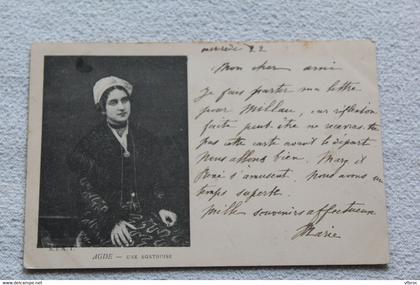 mercredi 22
Mon cher ami
Je fais porter ma lettre
pour Millau, car réflexion
faite peut-être ne recevras-tu
pas cette carte avant le départ
Nous allons bien. Marg et
René s'amusent. Nous avons un
temps superbe.
Mille souvenirs affectueux
Marie
AGDE — UNE AGATHOISE